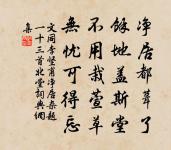 净居都葺了
餘地盖斯堂
不用栽萱草
無忧可得忘
文同李堅甫净居杂題
一十三首北堂詞典網
集